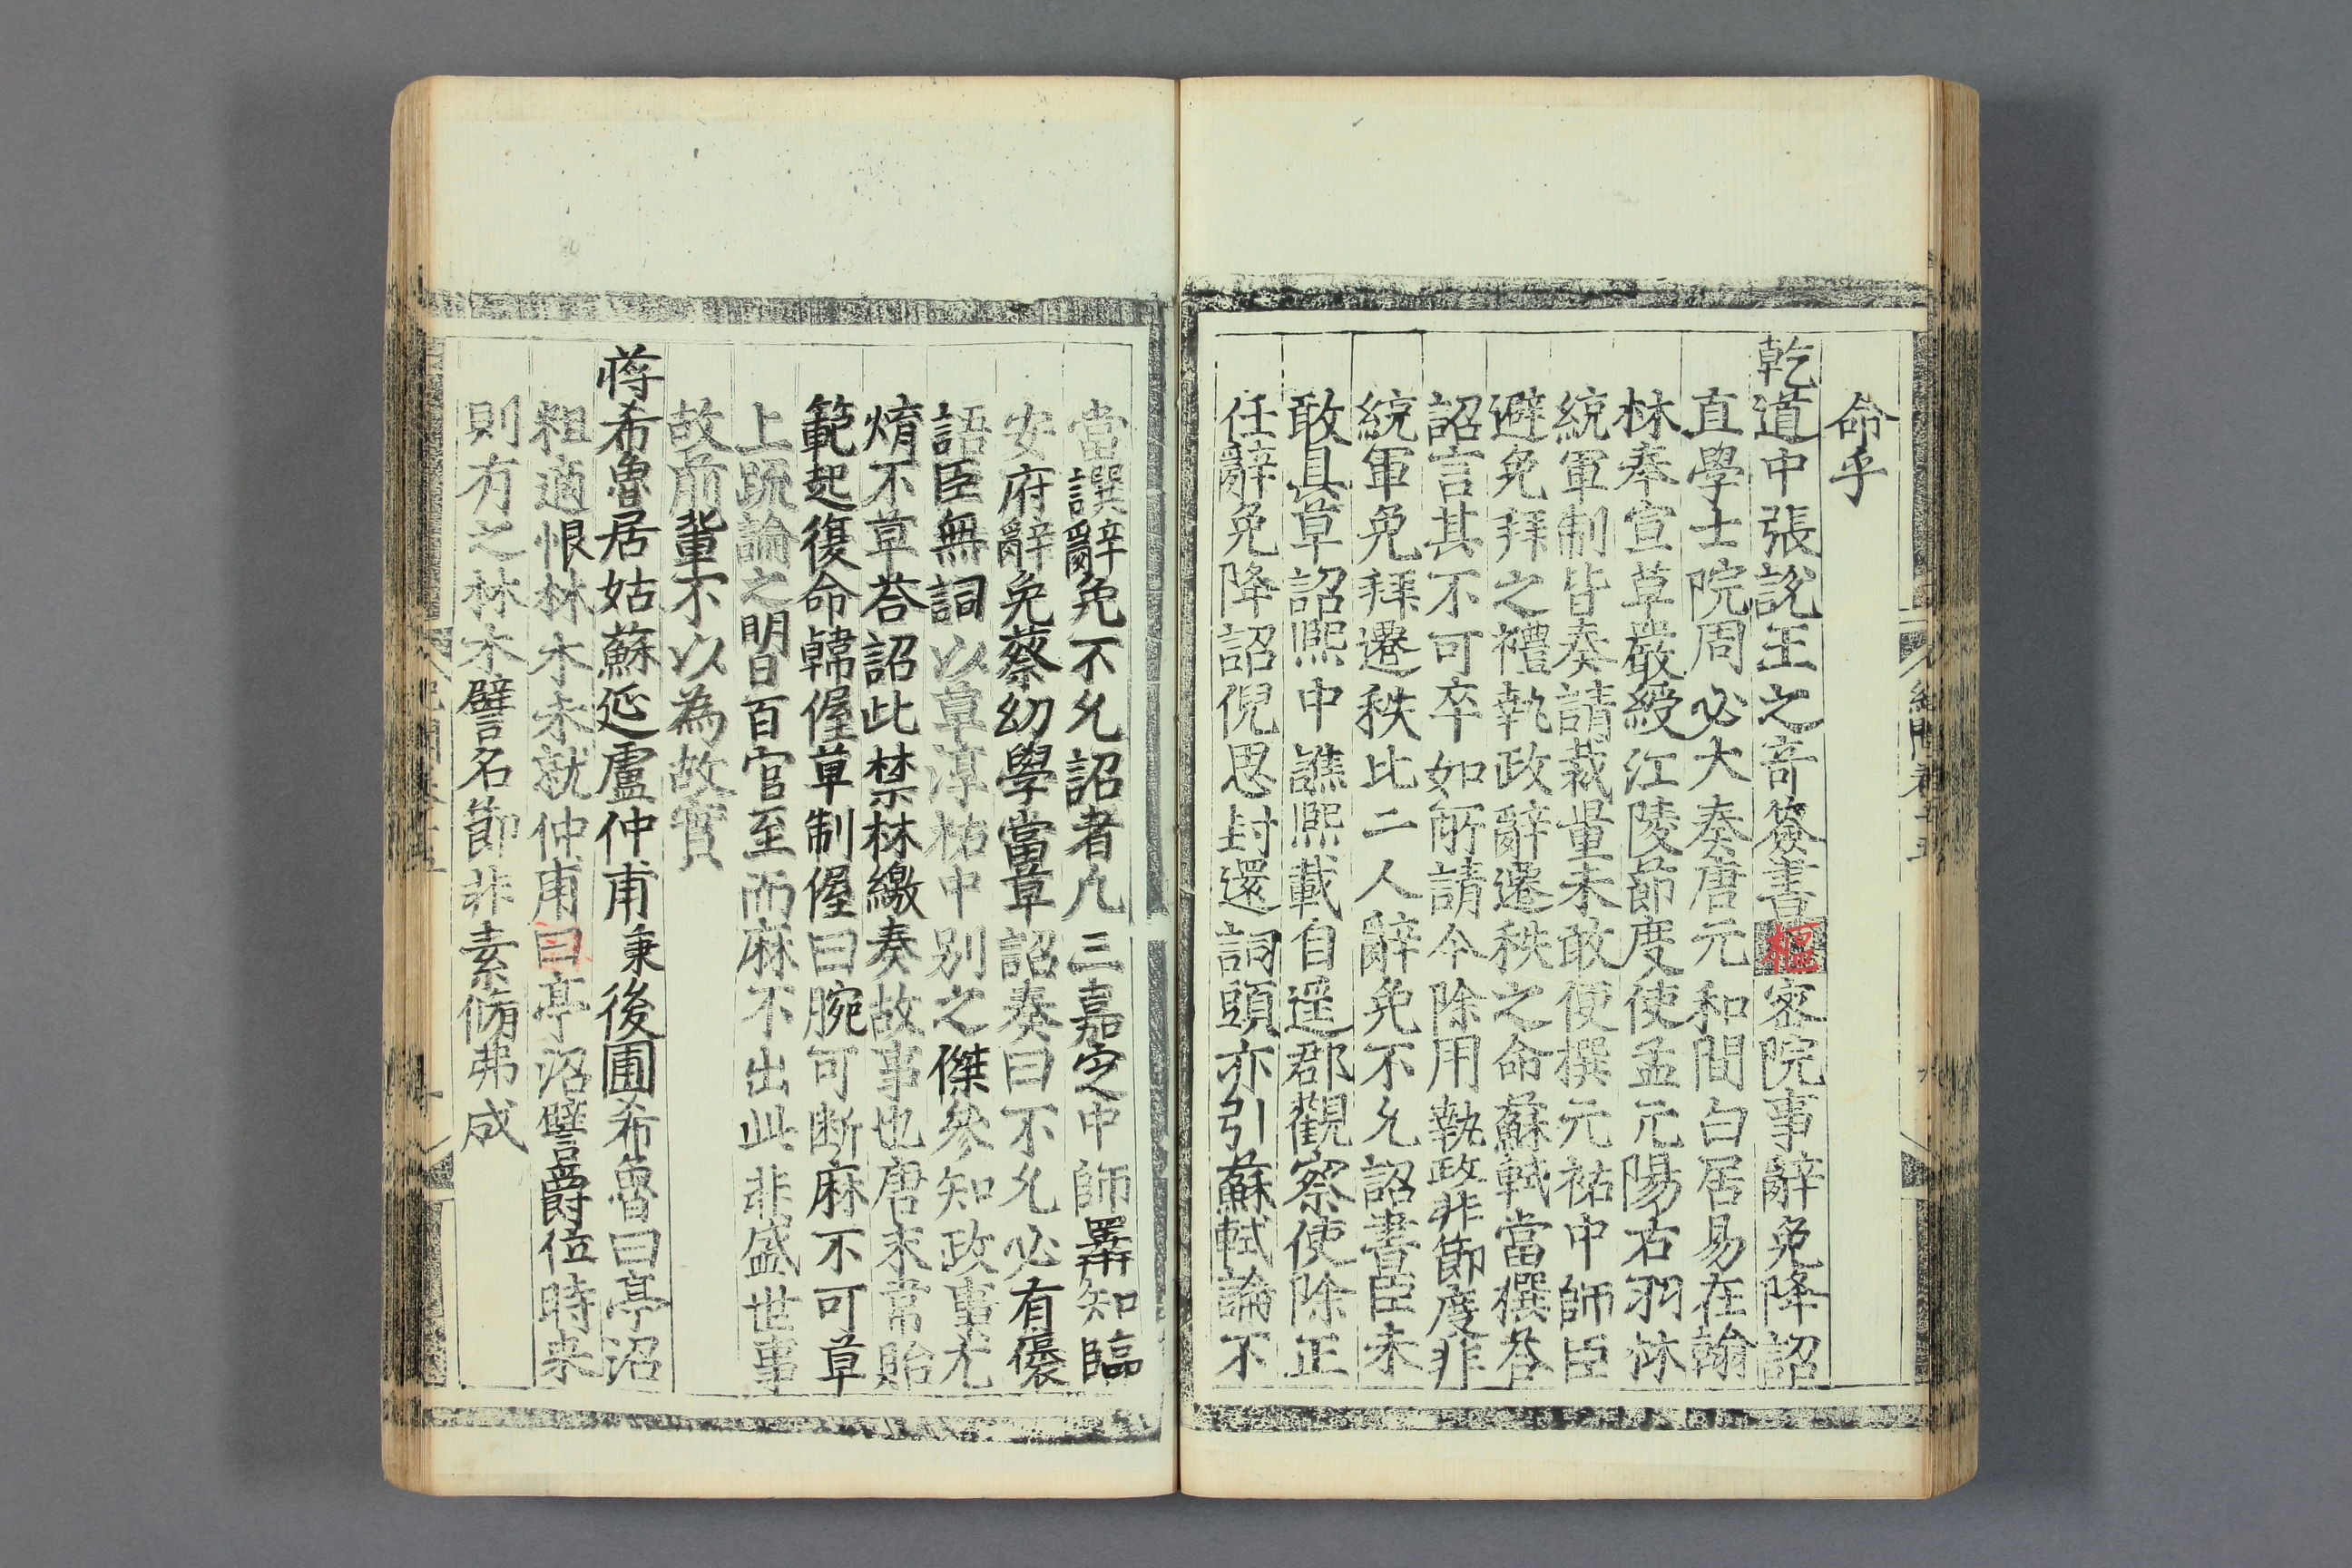 命乎
乾道中張說王之竒簽書樞密院事辭免降詔
直學士院周必大奏唐元和間白居易在翰
林奉宣草嚴綬江陵節度使孟元陽右羽林
統軍制皆奏請裁量未敢便撰元祐中師臣
避免拜之禮執政辭遷秩之命蘇軾當撰荅
詔言其不可卒如所請今除用執政非節度非
統軍免拜遷秩比二人辭免不允詔書臣未
敢具草詔熈中譙熈載自遥郡觀察使除正
任辭免降詔倪思封還詞頭亦引蘇軾論不
當譔辭免不允詔者凢三嘉定中師𢍰知臨
安府辭免蔡幼學當草詔奏曰不允必有襃
語臣無詞以草淳祐中别之傑參知政事尤
焴不草荅詔此禁林繳奏故事也唐末常貽
範起復命韓偓草制偓曰腕可断麻不可草
上疏論之明日百官至而麻不出此非盛世事
故前輩不以為故實
蒋希魯居姑蘇延盧仲甫秉後圃希魯曰亭沼
粗適恨林木未就仲甫曰亭沼譬爵位時来
則有之林木譬名節非素脩弗成